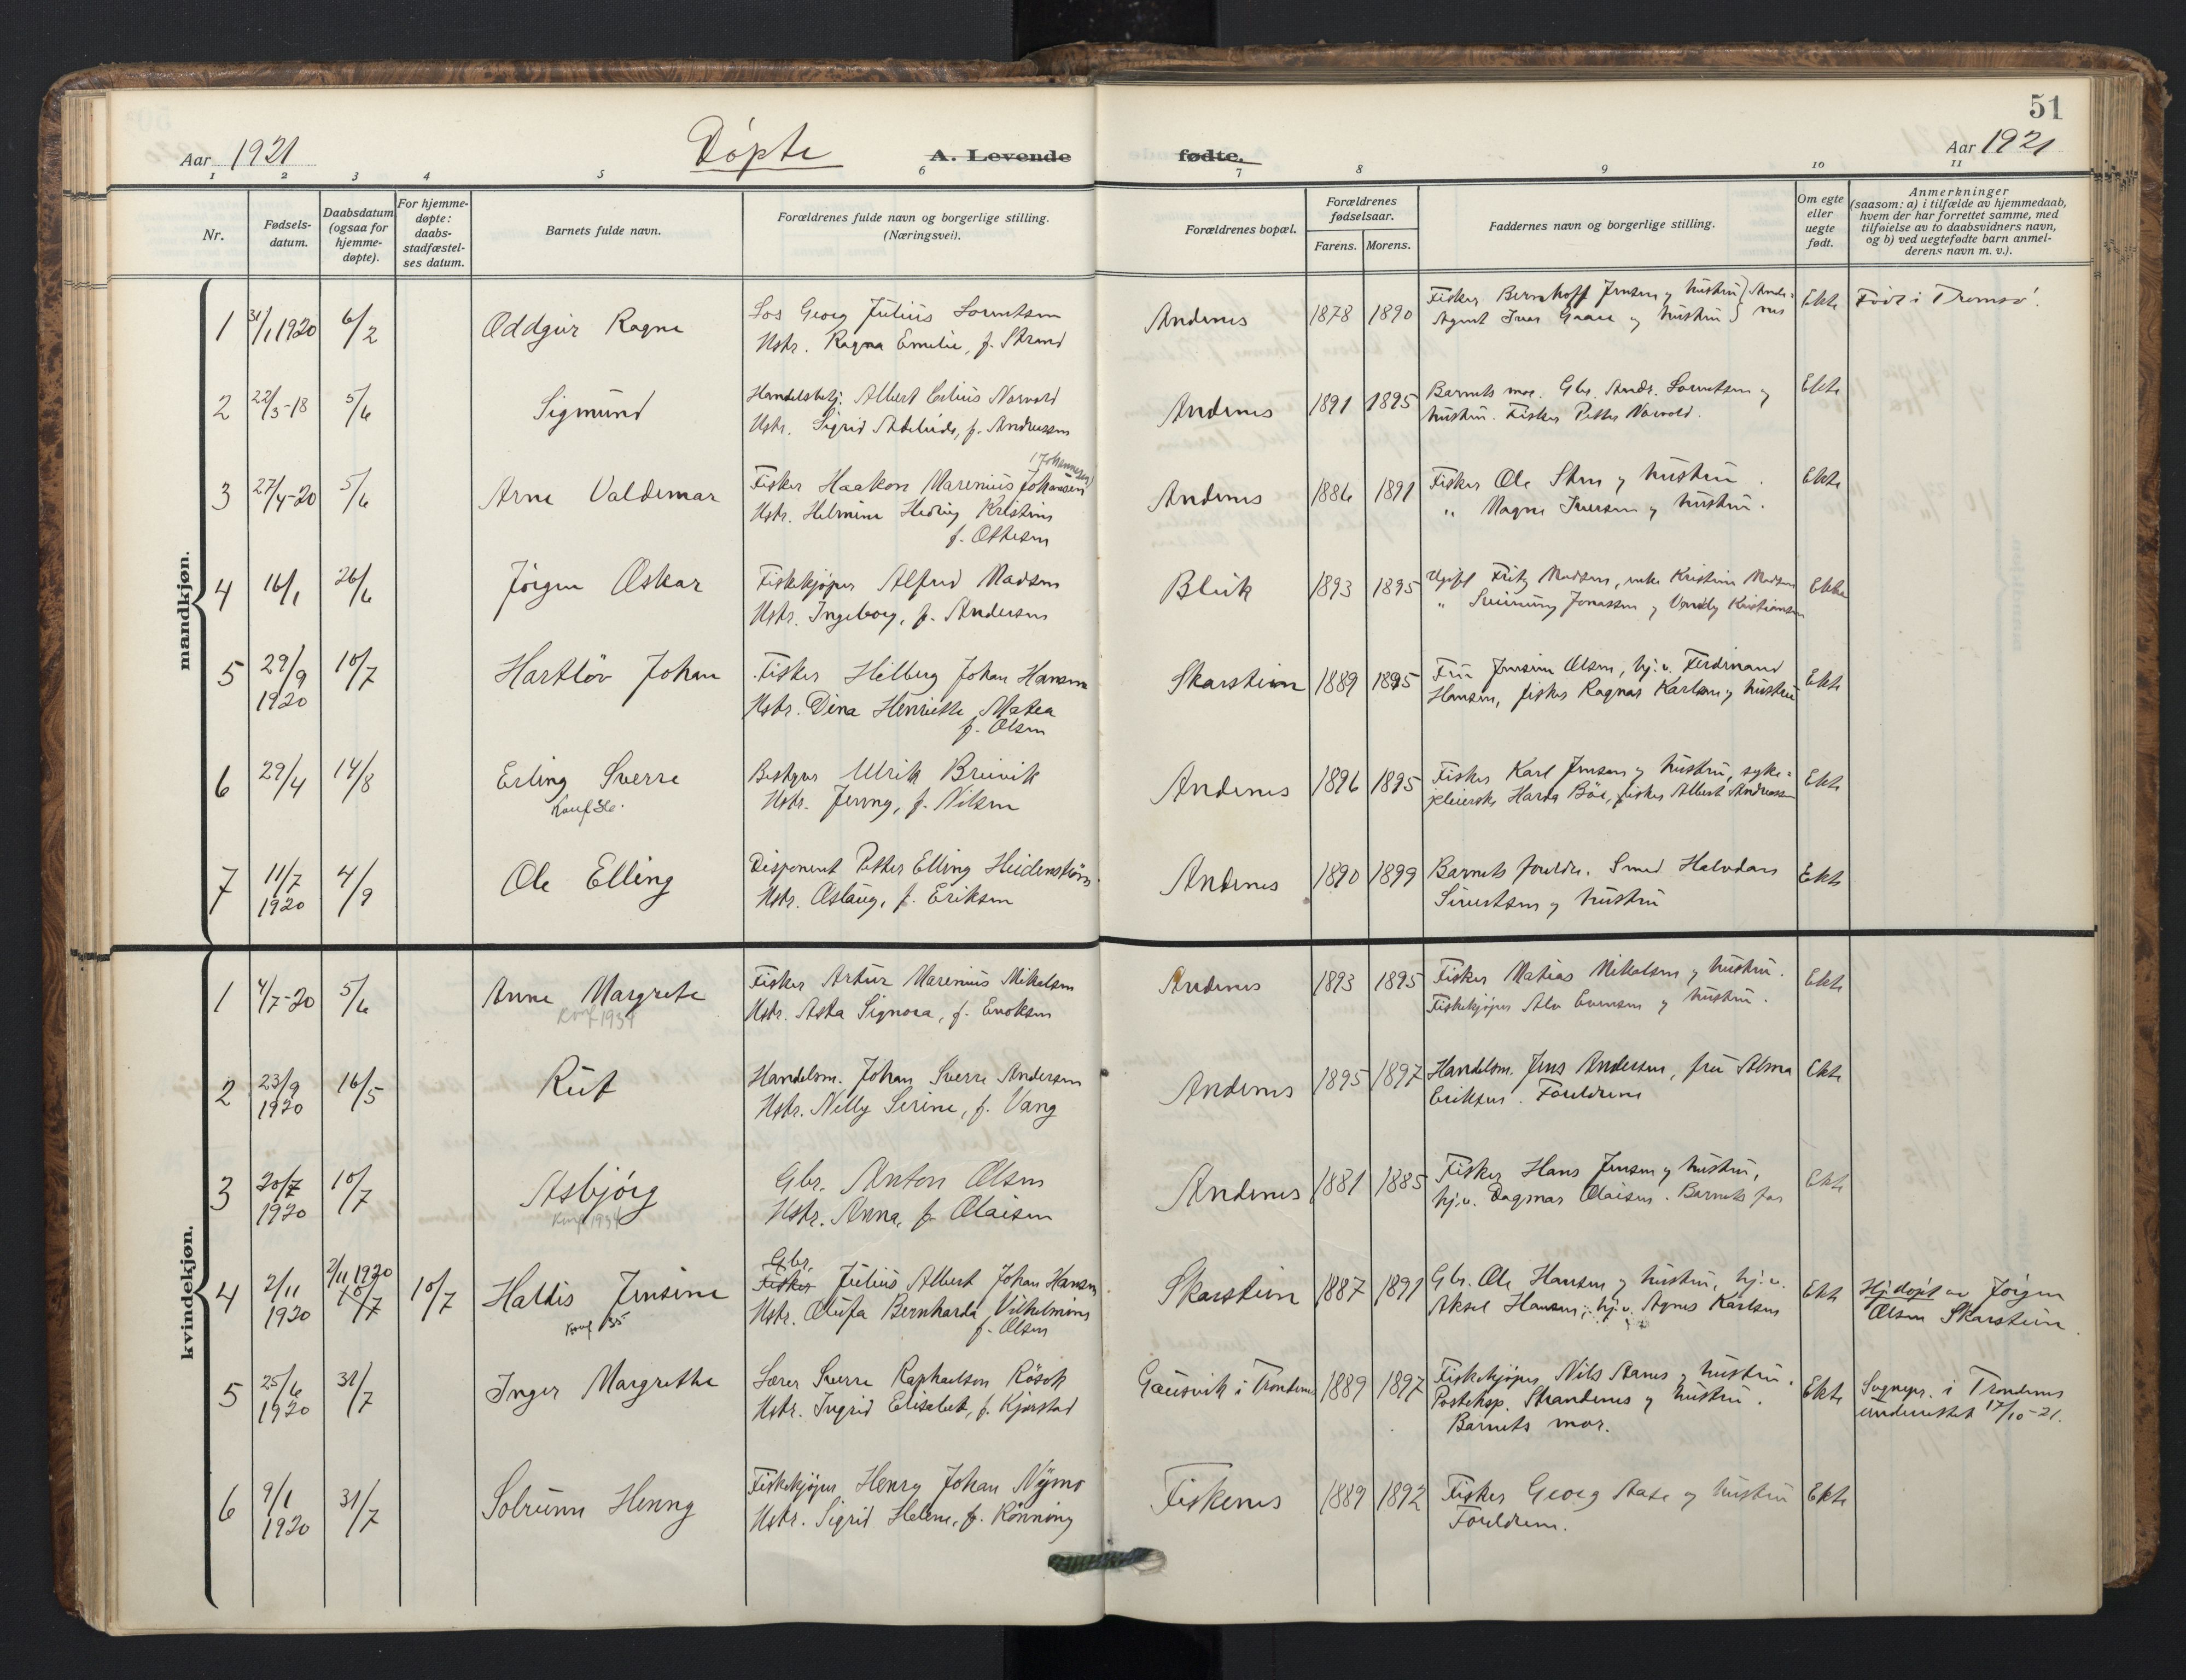 51
Aar 1921
Døpte
A. Levende
fødte.
Aar 1921
1 2 3 4 5 6 7 8 9 10 11
Nr.
Fødsels-
datum.
Daabsdatum
(ogsaa for
hjemme-
døpte).
For hjemme-
døpte:
daabs-
stadfæstel-
ses datum.
Barnets fulde navn.
Forældrenes fulde navn og borgerlige stilling.
(Næringsvei).
Forældrenes bopæl.
Forældrenes
fødselsaar.
Farens. Morens.
Faddernes navn og borgerlige stilling.
Om egte
eller
uegte
født.
Anmerkninger
(saasom: a) i tilfælde av hjemmedaab,
hvem der har forrettet samme, med
tilføielse av to daabsvidners navn,
og b) ved uegtefødte barn anmel-
derens navn m. v.).
mandkjøn.
1 31/1 1920 6/2 Oddgeir Ragne
Los Georg Julius Lorentsen
Hstr. Ragna Emilie, f. Strand
Andenes 1878 1890
Fisker Bernhoff Jensen og hustru } Ande-
Agent Ivar Gaare og hustru } nes
Ekte Født i Tromsø.
2 22/3-18 5/6 Sigmund
Handelsbetj. Albert Edius Norvold
Hstr. Sigrid Adelinde, f. Andreassen
Andenes 1891 1895
Barnets mor. Gbr. Andr. Lorentsen og
hustru. Fisker Petter Norvold.
Ekte
3 27/4-20 5/6 Arne Valdemar
(Johannesen)
Fisker Haakon Marenius Johansen
Hstr. Helmine Hedvig Kristine
f. Ottesen
Andenes 1886 1891
Fisker Ole Steen og hustru.
" Magne Iversen og hustru.
Ekte
4 16/1 26/6 Jørgen Oskar
Fiskekjøper Alfred Madsen
Hstr. Ingeborg, f. Andersen
Bleik 1893 1895
Ugift Fritz Madsen, enke Kristine Madsen
" Jonassen og Kristiansen
Ekte
5 29/9 1920 10/7 Hartløv Johan
Fisker Hilberg Johan Hansen
Hstr. Dina Henriette Matea
f. Olsen
Skarstein 1889 1895
Fru Jensine Olsen, hj.v. Ferdinand
Hansen, fisker Ragnar Karlsen og hustru
Ekte
6 29/4 14/8 Erling Sverre
Konf 36.
Bestyrer Ulrik Breivik
Hstr. Jenny, f. Nilsen
Andenes 1896 1895
Fisker Karl Jensen og hustru, syke-
pleierske Harda Bøe, fisker Albert Andreassen
Ekte
7 11/7 1920 4/9 Ole Elling
Disponent Petter Elling Heidenstrøm
Hstr. Aslaug, f. Eriksen
Andenes 1890 1899
Barnets foreldre. Smed Halvdan
Sivertsen og hustru
Ekte
kvindekjøn.
1 4/7-20 5/6 Anne Margrete
Konf 1934
Fisker Artur Marenius Mikalsen
Hstr. Asta Signora, f. Enoksen
Andenes 1893 1895
Fisker Matias Mikalsen og hustru.
Fiskekjøper Alv Evensen og hustru.
Ekte
2 23/9 1920 16/5 Rut
Handelsm. Johan Sverre Andersen
Hstr. Nelly Serine, f. Vang
Andenes 1895 1897
Handelsm. Jens Andersen, fru Alma
Eriksen. Foreldrene
Ekte
3 20/7 1920 10/7 Asbjørg
Konf 1934
Gbr. Anton Olsen
Hstr. Anna, f. Olaisen
Andenes 1881 1885
Fisker Hans Jensen og hustru,
hj.v. Dagmar Olaisen. Barnets far
Ekte
4 2/11 1920 2/11 1920 10/7 10/7 Haldis Jensine
Konf 35
Gbr.
Fisker Julius Albert Johan Hansen
Hstr. Olufa Bernharda Vilhelmine
f. Olsen
Skarstein 1887 1891
Gbr. Ole Hansen og hustru, hj.v.
Aksel Hansen, hj.v. Agnes Karlsen
Ekte
Hj.døpt av Jørgen
Olsen Skarstein.
5 25/6 1920 31/7 Inger Margrethe
Lærer Sverre Raphaelson Røsok
Hstr. Ingrid Elisabet, f. Kjørstad
Gausvik i Trondenes 1889 1897
Fiskekjøper Nils Aanes og hustru.
Posteksp. Strandenes og hustru.
Barnets mor.
Ekte
Sognepr. i Trondenes
underrettet 17/10-21.
6 9/1 1920 31/7 Solrunn Henny
Fiskekjøper Henry Johan Nymo
Hstr. Sigrid Helene, f. Rønning
Fiskenes 1889 1892
Fisker Georg Aase og hustru
Foreldrene.
Ekte